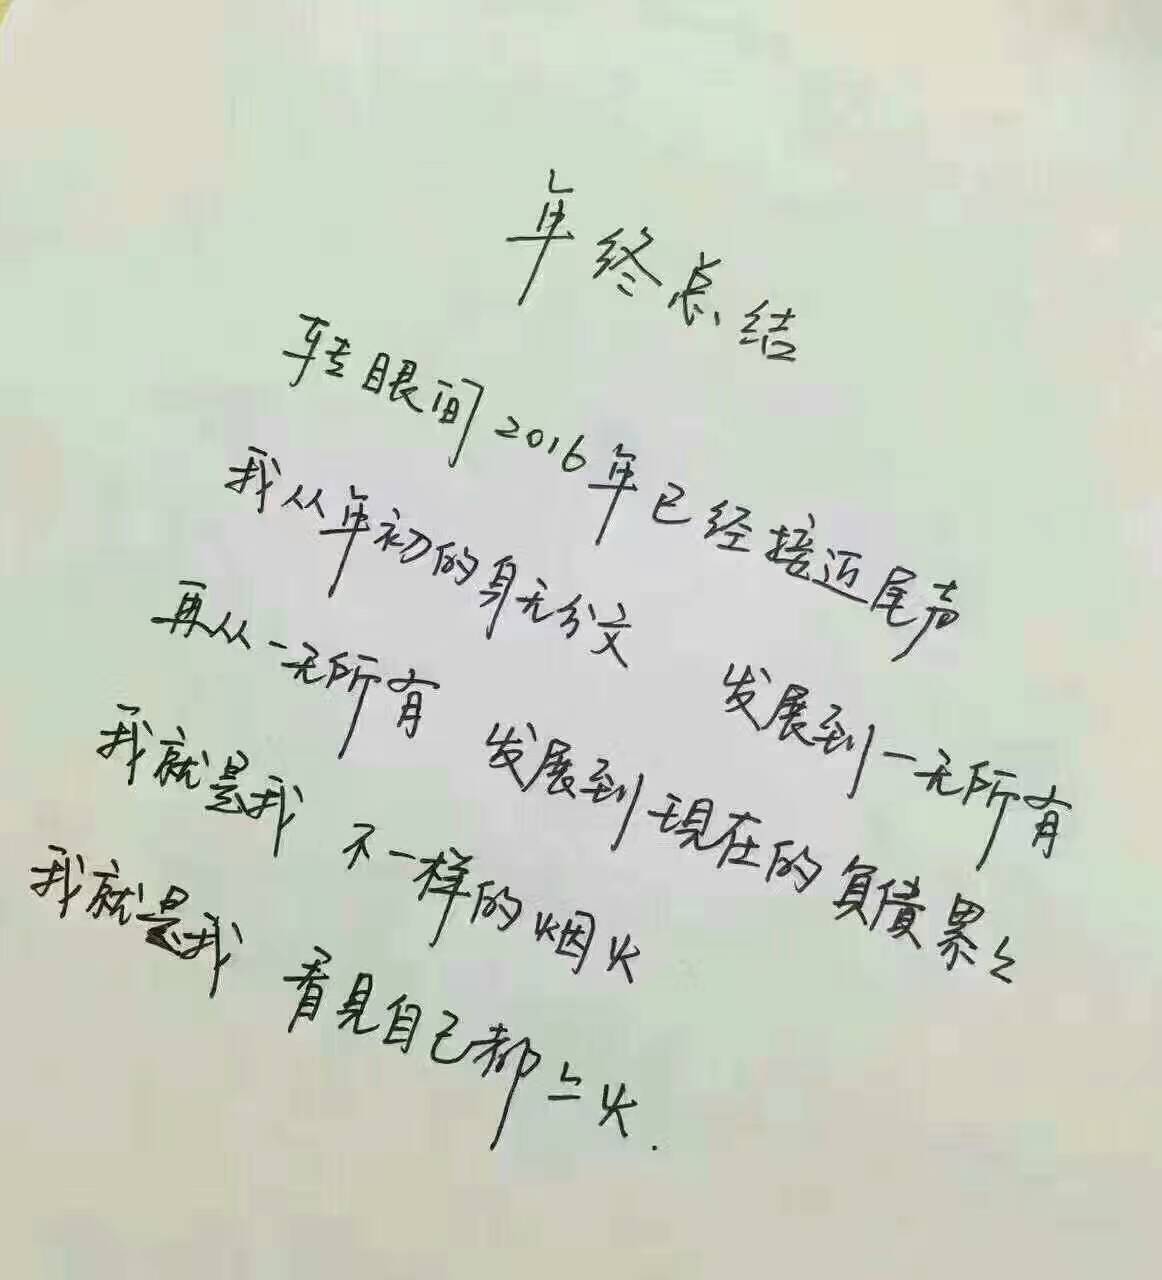 年终总结
转眼间2016年已经接近尾声
我从年初的身无分文 发展到一无所有
再从一无所有 发展到现在的負債累々
我就是我 不一样的烟火
我就是我 看見自己都上火.